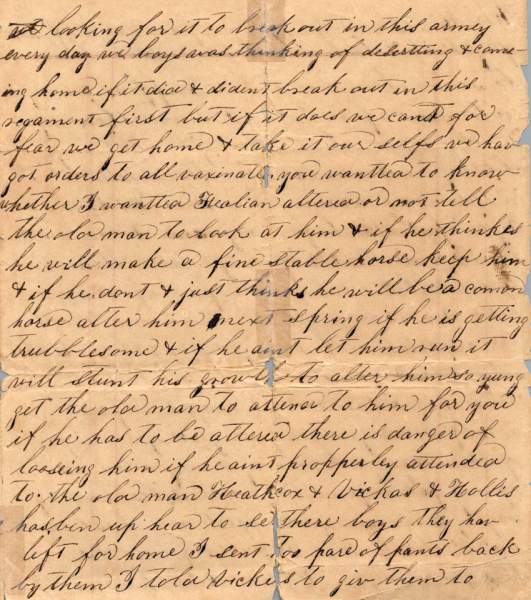 looking for it to break out in this armey
every day we boys was thinking of desertting & come
ing home if it did & dident break out in this
regament first but if it does we cant for
fear we get home & take it our selfs we hav
got orders to all vaxinate you wanttea to know
whether I wanttea altered or not tell
the old man to look at him & if he thinkes
he will make a fine stable horse keep him
& if he dont & just thinks he will be a comon
horse alter him next spring if he is getting
trubblesome & if he aint let him run it
will stunt his growth to alter him so yung
get the old man to attend to him for you
if he has to be altered there is danger of
looseing him if he aint propperley attended
to. the old man Heathcox & Vickas & Hollis
has ben up hear to se there boys they hav
left for home I sent too pare of pants back
by them I told Vickes to giv them to